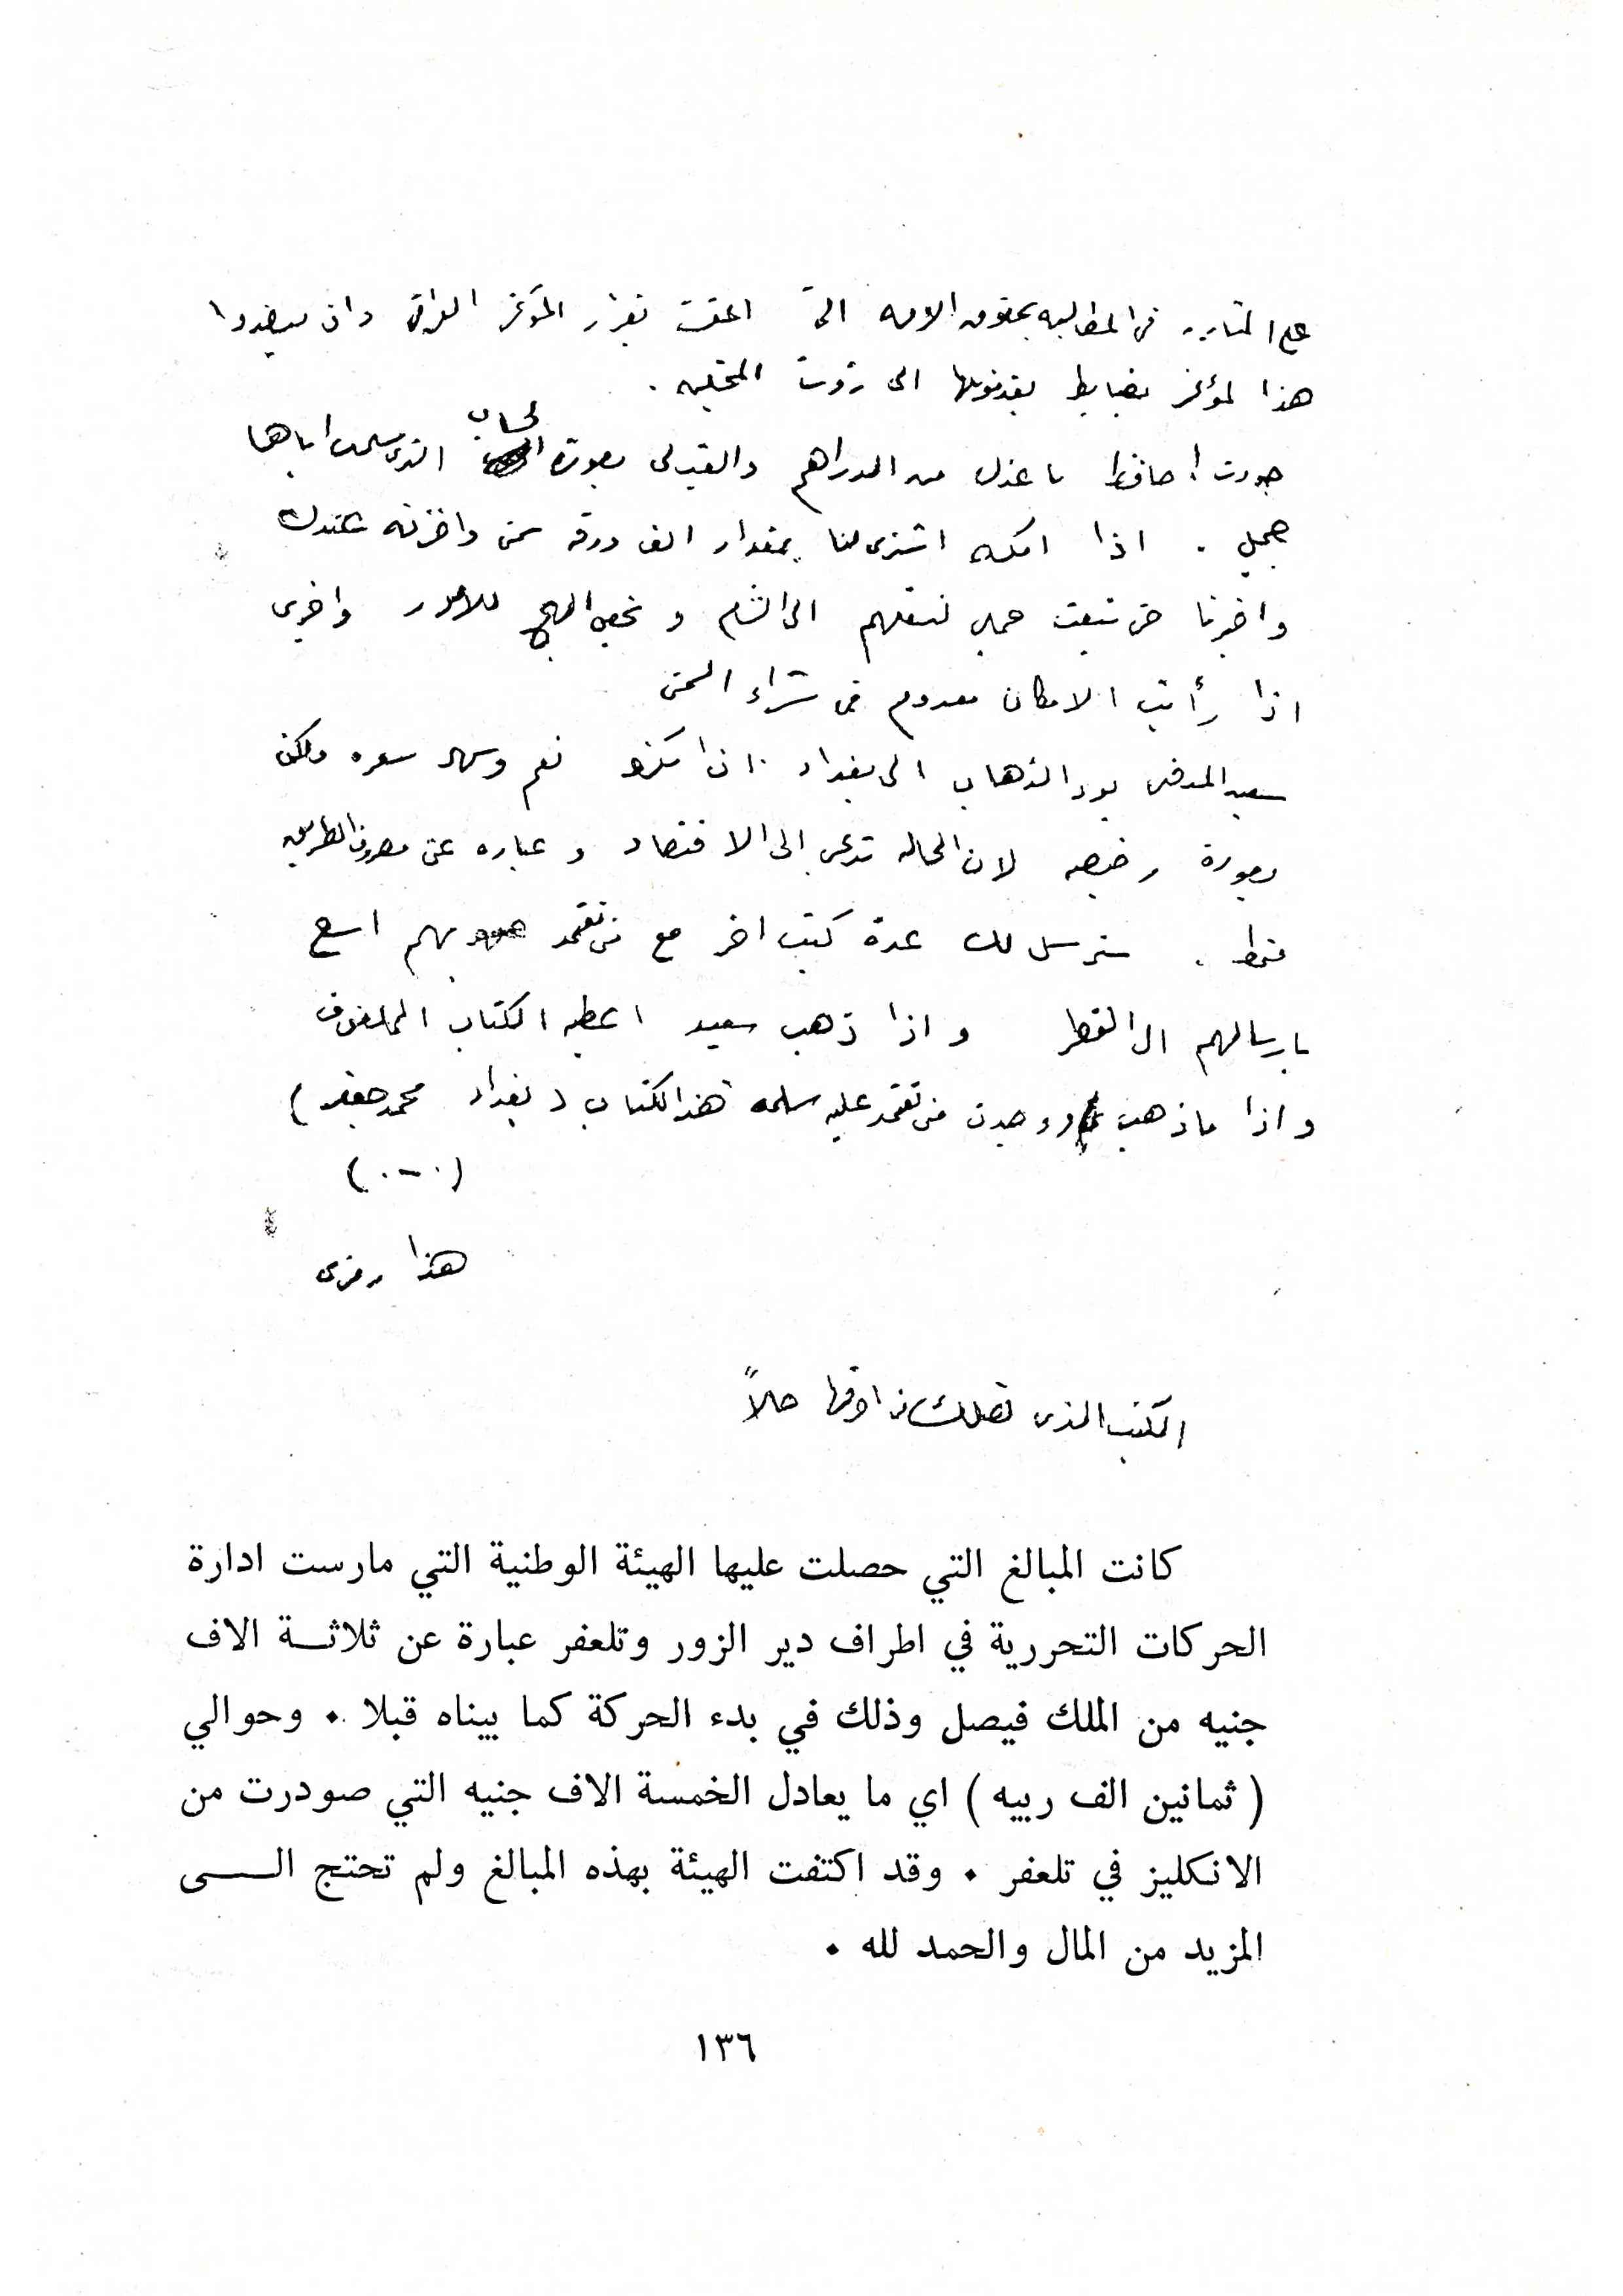 في المطالبه بحقوق الامه التي اعقت بقرار المؤتمر العراقي وان
هذا المؤتمر مضابط يقدموها الى المحتله .
جودت ! حافظ ما عندك من الدراهم بصورة الحساب اياها
جميل . اذا امكنك اشترى لنا بمقدار الف ورقه سمن واخزنه عندك
واخبرنا حتى نبعث لنقلهم الى الشام و للامور واخرى
اذا رأيت الامكان معدوم في شراء السمن
سعيد المدفعي يود الذهاب الى بغداد . اذا امكنه نعم وسهل سفره ولكن
بصورة رخيصه لان الحاله تدعي الى الاقتصاد وعباره عن مصروف الطريق
فقط . سنرسل لك عدة كتب اخر مع من تعتمد بهم اسع
بارسالهم الى القطر واذا ذهب سعيد اعطيه الكتاب الملفوف
واذا ما ذهب ووجدت من تعتمد عليه سلمه هذا الكتاب ( بغداد محمد جعفر )
(٠-٠)
هذا رمزى
الكتب الذي حالاً
كانت المبالغ التي حصلت عليها الهيئة الوطنية التي مارست ادارة
الحركات التحررية في اطراف دير الزور وتلعفر عبارة عن ثلاثة الاف
جنيه من الملك فيصل وذلك في بدء الحركة كما بيناه قبلا . وحوالي
( ثمانين الف ربيه ) اي ما يعادل الخمسة الاف جنيه التي صودرت من
الانكليز في تلعفر . وقد اكتفت الهيئة بهذه المبالغ ولم تحتج الى
المزيد من المال والحمد لله .
١٣٦